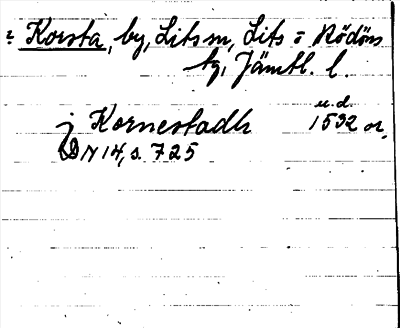 : Korsta, by, Lits sn, Lits o Rödöns
tg, Jämtl. l.
j Kornestadh u.d. 1532 or.
DN 14, s. 725